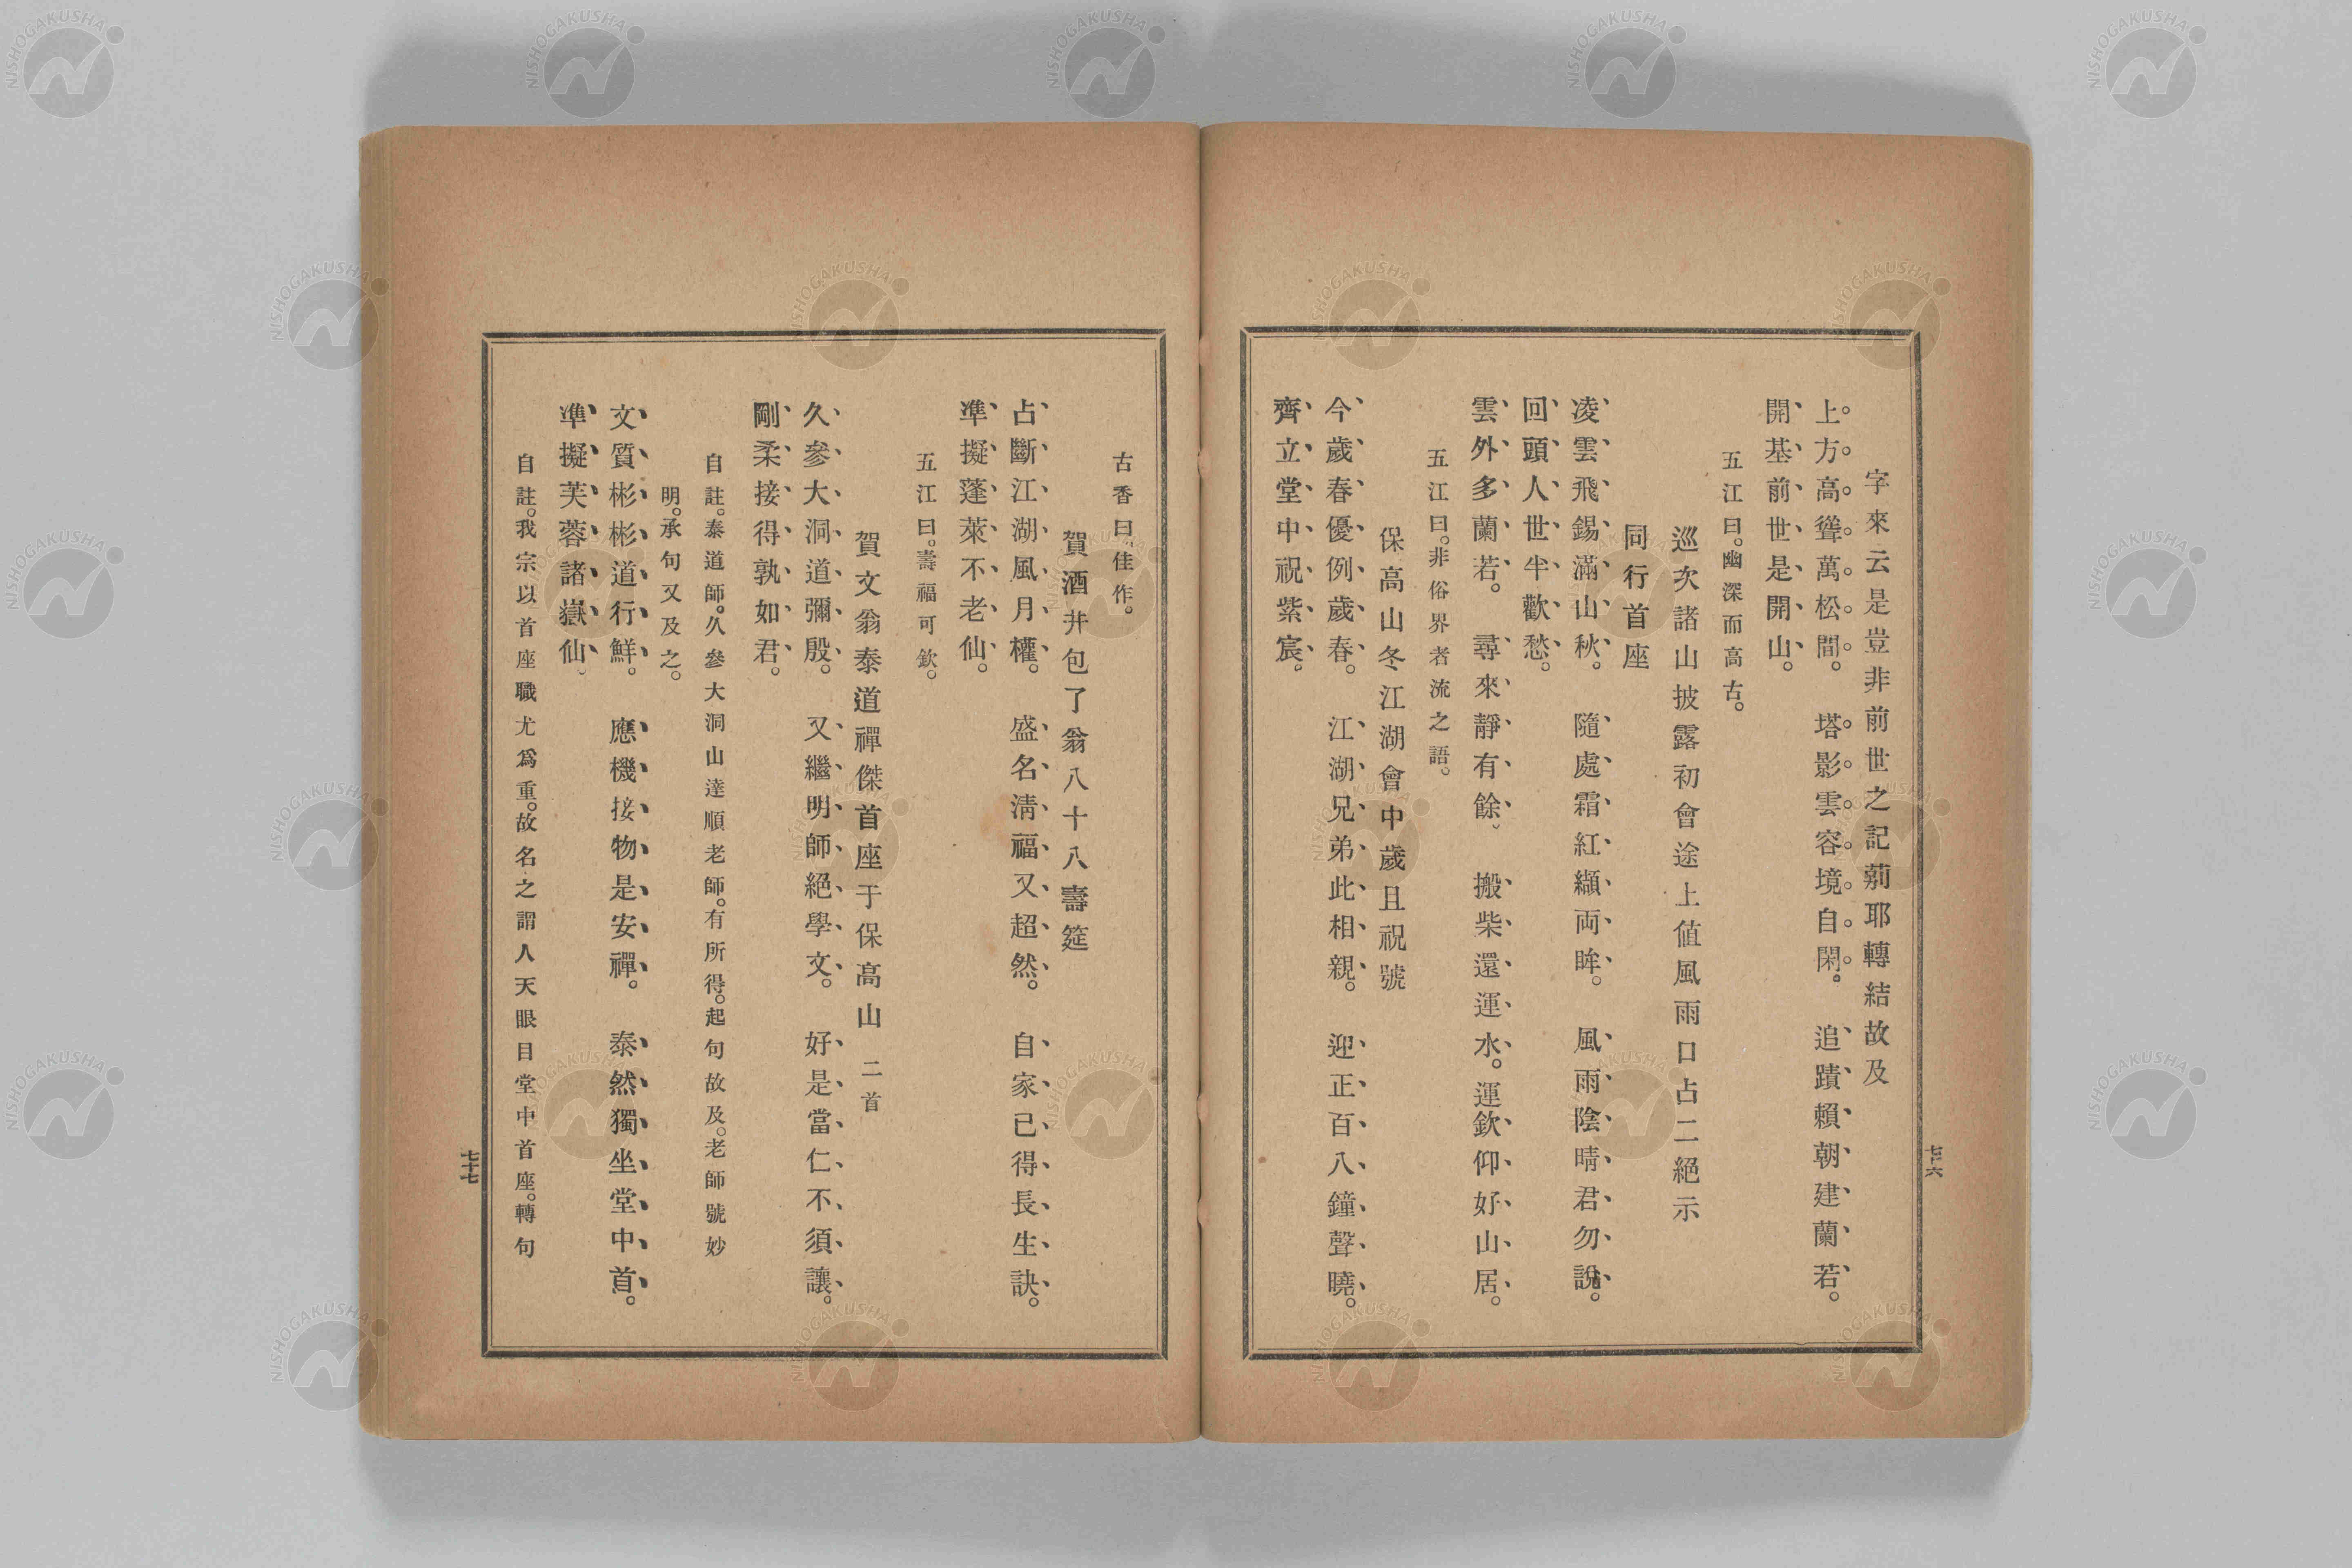 字來云是豈非前世之記莂耶轉結故及
上方高聳萬松間。塔影雲容境自閑。追蹟賴朝建蘭若。
開基前世是開山。
五江曰。幽深而高古。
巡次諸山披露初會途上値風雨口占二絕示
同行首座
凌雲飛錫滿山秋。隨處霜紅纈両眸。風雨陰晴君勿說。
回頭人世半歡愁。
雲外多蘭若。尋來靜有餘。搬柴還運水。運欽仰好山居。
五江曰。非俗界者流之語。
保高山冬江湖會中歲且祝號
今歲春優例歲春。江湖兄弟此相親。迎正百八鐘聲曉。
齊立堂中祝紫宸。
七十六
古香曰。佳作。
賀酒井包了翁八十八壽筵
占斷江湖風月權。盛名淸福又超然。自家已得長生訣。
準擬蓬萊不老仙。
五江曰。壽福可欽。
賀文翁泰道禪傑首座于保高山 二首
久參大洞道彌殷。又繼明師絕學文。好是當仁不須讓。
剛柔接得孰如君。
自註。泰道師。久參大洞山達順老師。有所得。起句故及。老師號妙
明。承句又及之。
文質彬彬道行鮮。應機接物是安禪。泰然獨坐堂中首。
準擬芙蓉諸嶽仙。
自註。我宗以首座職尤爲重。故名之謂人天眼目堂中首座。轉句
七十七
NISHOGAKUSHA